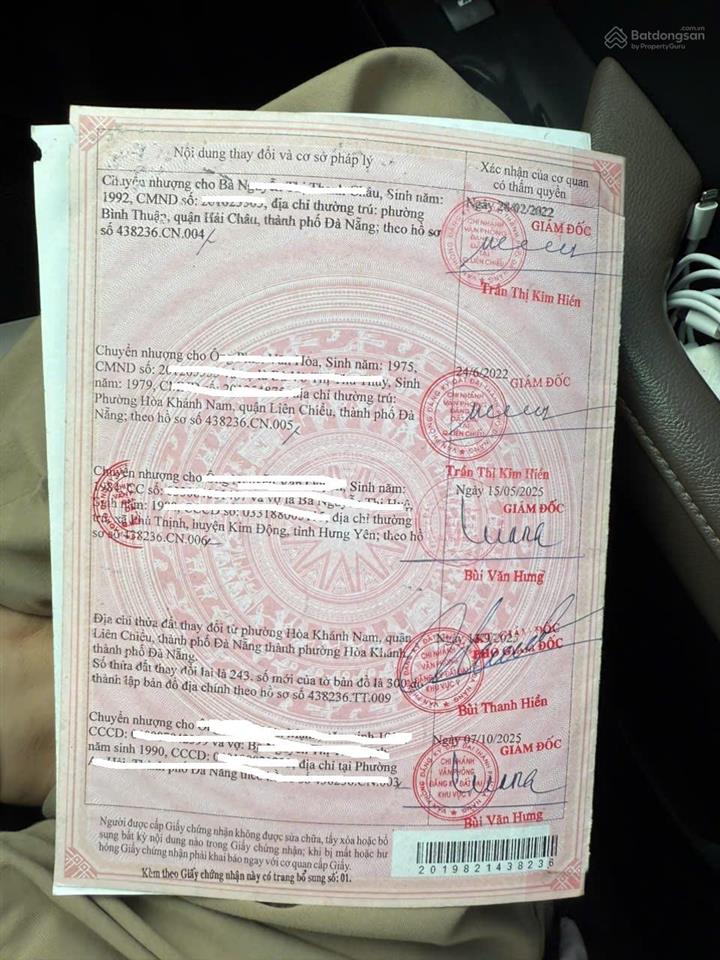 Batdongsan
.com.vn
by PropertyGuru
Nội dung thay đổi và cơ sở pháp lý
Xác nhận của cơ quan
có thẩm quyền
Chuyển nhượng cho Bà Sinh năm:
1992, CMND số: địa chỉ thường trú: phường
Bình Thuận, quận Hải Châu, thành phố Đà Nẵng; theo hồ sơ
số 438236.CN.004
Ngày 28/02/2022
GIÁM ĐỐC
CHI NHÁNH
VĂN PHÒNG
Trần Thị Kim Hiền
Chuyển nhượng cho Ông Hòa, Sinh năm: 1975,
CMND số:
năm: 1979, địa chỉ thường trú:
Phường Hòa Khánh Nam, quận Liên Chiểu, thành phố Đà
Nẵng; theo hồ sơ số 438236.CN.005
24/6/2022
GIÁM ĐỐC
CHI NHÁNH
VĂN PHÒNG
Trần Thị Kim Hiền
Chuyển nhượng cho Sinh năm:
CC số: và vợ là Bà
địa chỉ thường
Phú Thịnh, huyện Kim Động, tỉnh Hưng Yên; theo hồ
sơ số 438236.CN.006
Ngày 15/05/2025
GIÁM ĐỐC
Bùi Văn Hưng
Địa chỉ thửa đất thay đổi từ phường Hòa Khánh Nam, quận
Liên Chiểu, thành phố Đà Nẵng thành phường Hòa Khánh,
thành phố Đà Nẵng.
Số thửa đất thay đổi lại là 243. số mới của tờ bản đồ là 300 do
thành lập bản đồ địa chính theo hồ sơ số 438236.TT.009
PHÓ GIÁM ĐỐC
CHI NHÁNH
VĂN PHÒNG
KHU VỰC V
Bùi Thanh Hiền
Chuyển nhượng cho
CCCD: và vợ:
năm sinh 1990, CCCD: địa chỉ tại Phường
thành phố Đà Nẵng theo
Ngày 07/10/2025
GIÁM ĐỐC
CHI NHÁNH
VĂN PHÒNG
ĐĂNG KÝ ĐẤT ĐAI
KHU VỰC V
Bùi Văn Hưng
Người được cấp Giấy chứng nhận không được sửa chữa, tẩy xóa hoặc bổ
sung bất kỳ nội dung nào trong Giấy chứng nhận; khi bị mất hoặc hư
hỏng Giấy chứng nhận phải khai báo ngay với cơ quan cấp Giấy.
Kèm theo Giấy chứng nhận này có trang bổ sung số: 01.
2019821438236